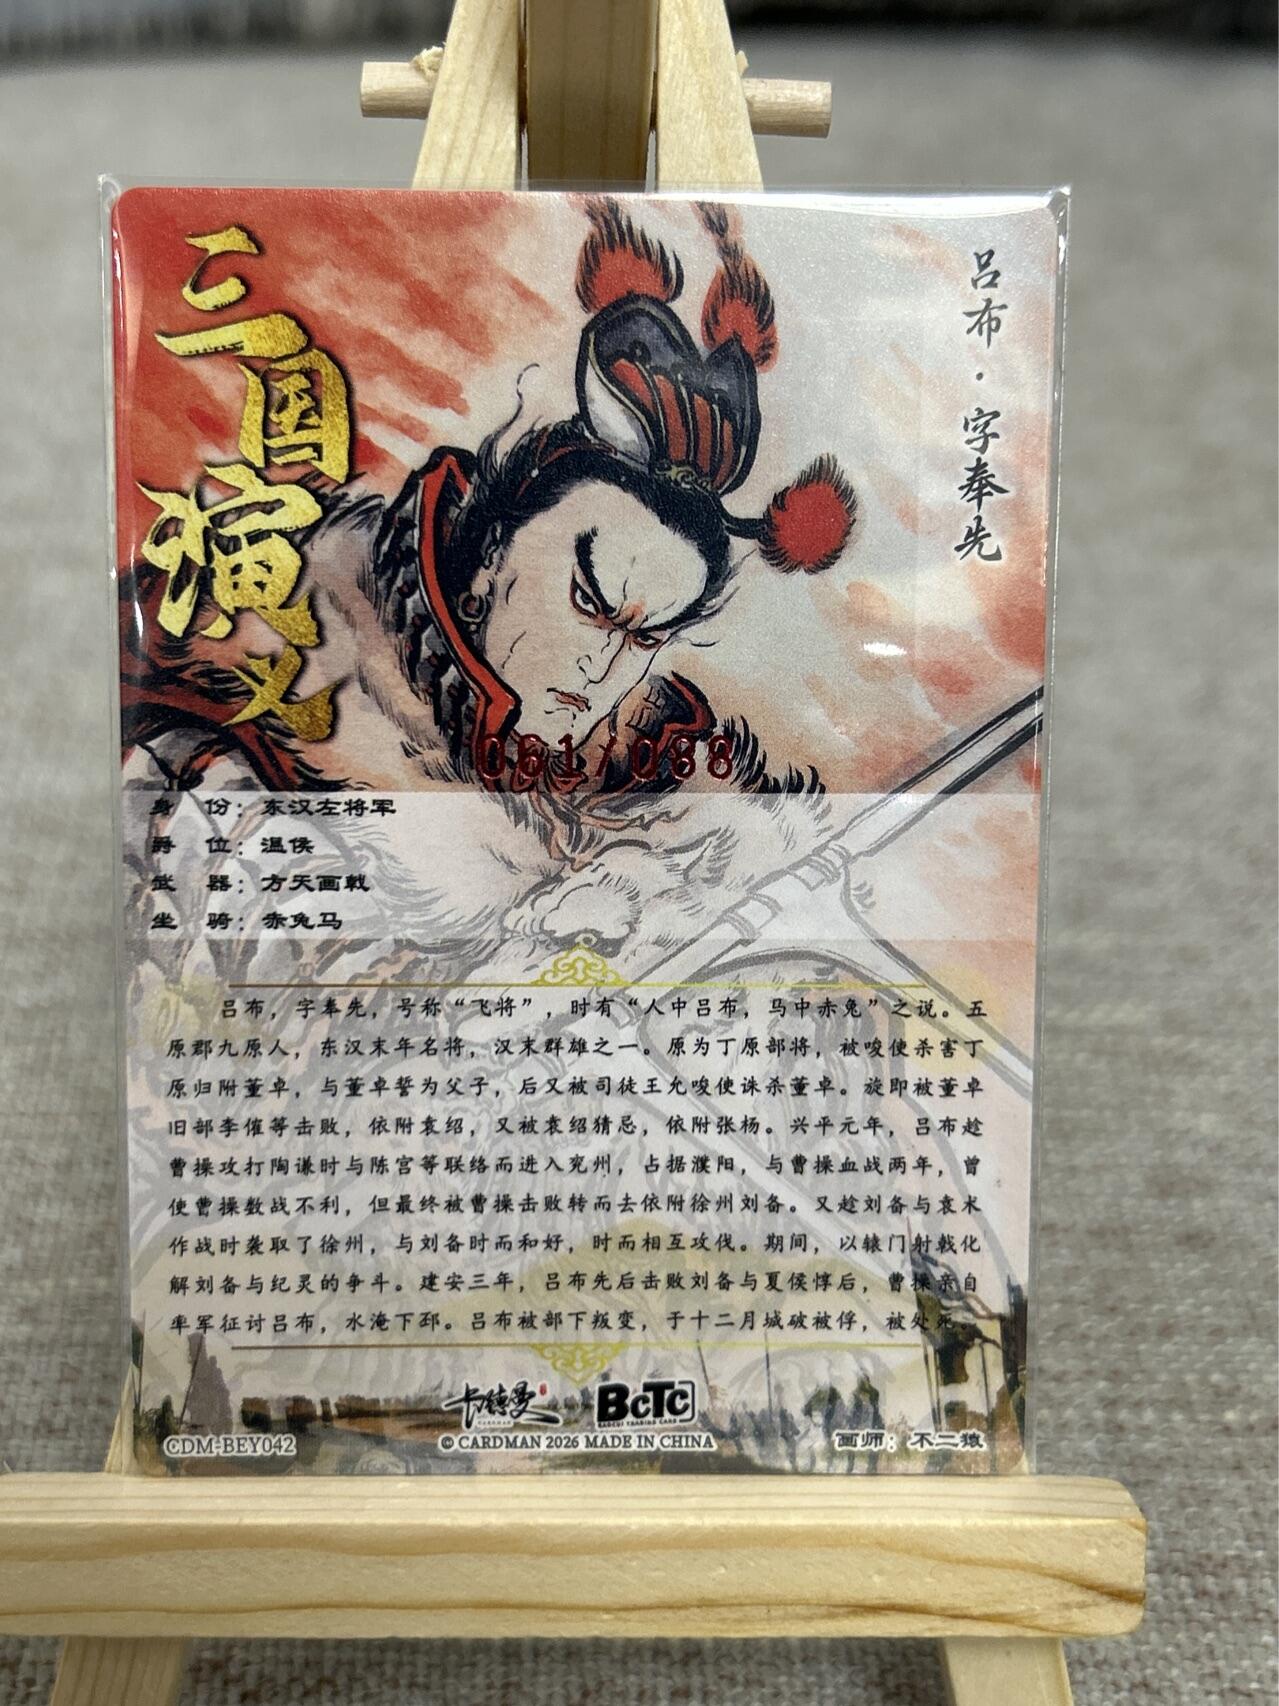 三国演义
吕布·字奉先
061/088
身 份：东汉左将军
爵 位：温侯
武 器：方天画戟
坐 骑：赤兔马
吕布，字奉先，号称“飞将”，时有“人中吕布，马中赤兔”之说。五
原郡九原人，东汉末年名将，汉末群雄之一。原为丁原部将，被唆使杀害丁
原归附董卓，与董卓誓为父子，后又被司徒王允唆使诛杀董卓。旋即被董卓
旧部李傕等击败，依附袁绍，又被袁绍猜忌，依附张杨。兴平元年，吕布趁
曹操攻打陶谦时与陈宫等联络而进入兖州，占据濮阳，与曹操血战两年，曾
使曹操数战不利，但最终被曹操击败转而去依附徐州刘备。又趁刘备与袁术
作战时袭取了徐州，与刘备时而和好，时而相互攻伐。期间，以辕门射戟化
解刘备与纪灵的争斗。建安三年，吕布先后击败刘备与夏侯惇后，曹操亲自
率军征讨吕布，水淹下邳。吕布被部下叛变，于十二月城破被俘，被处死。
卡德曼 BCTC
CDM-BEY042
© CARDMAN 2026 MADE IN CHINA
画师：不二猿